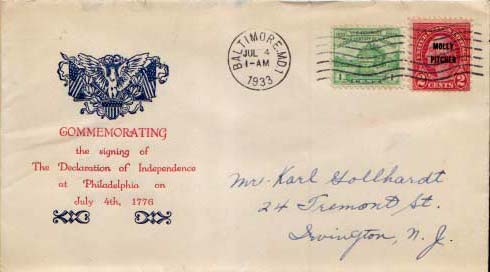 BALTIMORE, MD. 1
JUL 4
1-AM
1933
1
MOLLY
PITCHER
2 CENTS 2
COMMEMORATING
the signing of
The Declaration of Independence
at Philadelphia on
July 4th, 1776
Mr. Karl Gollhardt
24 Tremont St.
Irvington, N. J.